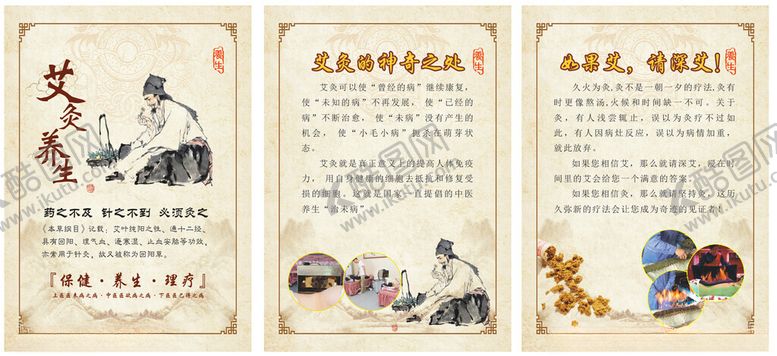 艾灸养生
養生
药之不及 针之不到 必须灸之
《本草纲目》记载：艾叶纯阳之性、通十二经、
具有回阳、理气血、逐寒湿、止血安胎等功效，
亦常用于针灸、故又被称为回阳草。
『保健·养生·理疗』
上医医未病之病·中医医欲病之病·下医医已病之病
養生
艾灸的神奇之处
艾灸可以使“曾经的病”继续康复，
使“未知的病”不再发展， 使“已经的
病”不断治愈， 使“未病”没有产生的
机会， 使“小毛小病”扼杀在萌芽状
态。
艾灸就是真正意义上的提高人体免疫
力， 用自身健康的细胞去抵抗和修复受
损的细胞。这就是国家一直提倡的中医
养生“治未病”
養生
如果艾，请深艾！
久火为灸，灸不是一朝一夕的疗法，灸有
时更像熬汤，火候和时间缺一不可。关于
灸，有人浅尝辄止，误以为灸疗不过如
此，有人因病灶反应，误以为病情加重，
就此放弃。
如果您相信艾，那么就请深艾，浸在时
间里的艾会给您一个满意的答案。
如果您相信灸，那么就请坚持灸，这历
久弥新的疗法会让您成为奇迹的见证者！
酷图网
www.ikutu.com
酷图网
www.ikutu.com
酷图网
www.ikutu.com